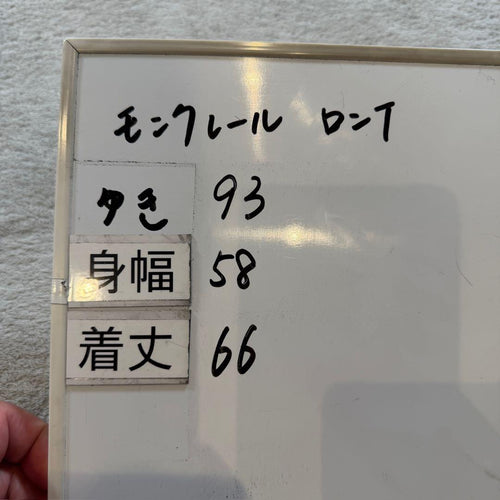 モンクレール ロンT
ゆき 93
身幅 58
着丈 66